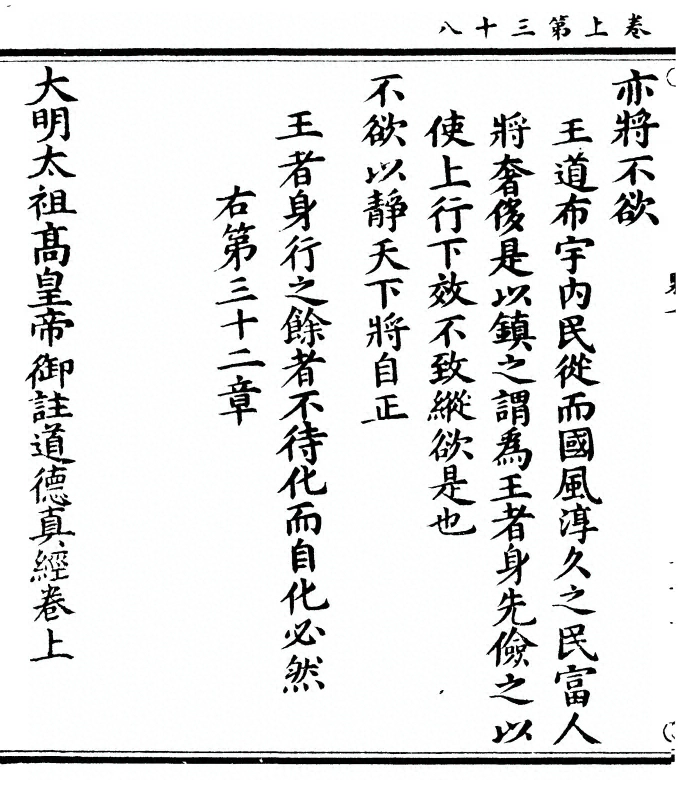 卷上第三十八
亦將不欲
王道布宇内民從而國風淳久之民富人
將奢侈是以鎮之謂爲王者身先儉之以
使上行下效不致縱欲是也
不欲以靜天下將自正
王者身行之餘者不待化而自化必然
右第三十二章
大明太祖高皇帝御註道德真經卷上